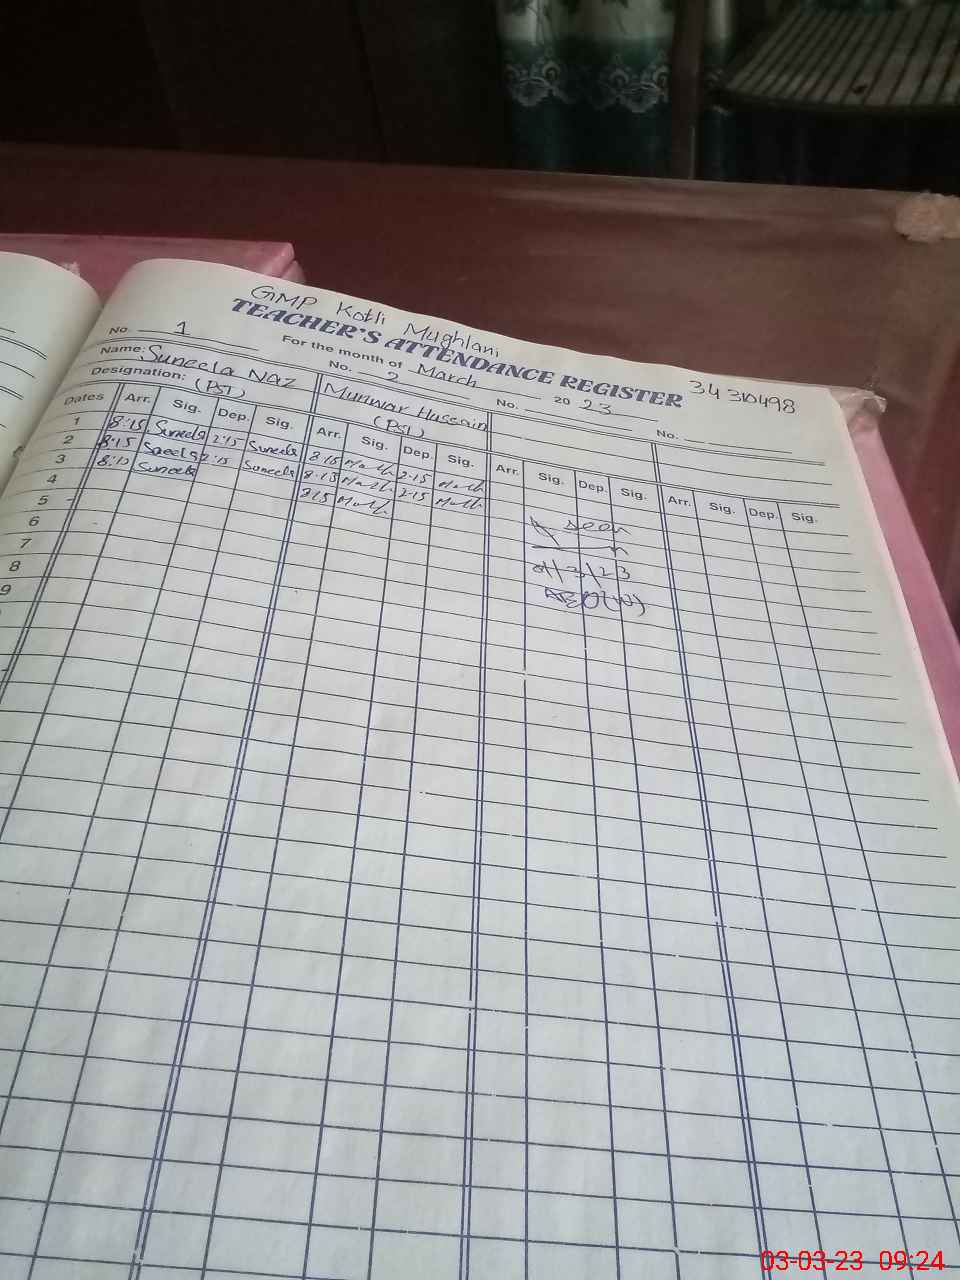 GMP Kotli Mughlani
TEACHER'S ATTENDANCE REGISTER
34310498
For the month of March 2023
No. 1 No. 2 No. No.
Name: Suneela Naz Munwar Hussain
Designation: (PST) (PST)
Dates Arr. Sig. Dep. Sig. Arr. Sig. Dep. Sig. Arr. Sig. Dep. Sig. Arr. Sig. Dep. Sig.
1 8:15 Suneela 2:15 Suneela 8:15 2:15
2 8:15 Suneela 2:15 Suneela 8:15 2:15
3 8:15 Suneela 8:15
4
5
6
7
8
9
seen
3/23
AEO(W)
03-03-23 09:24